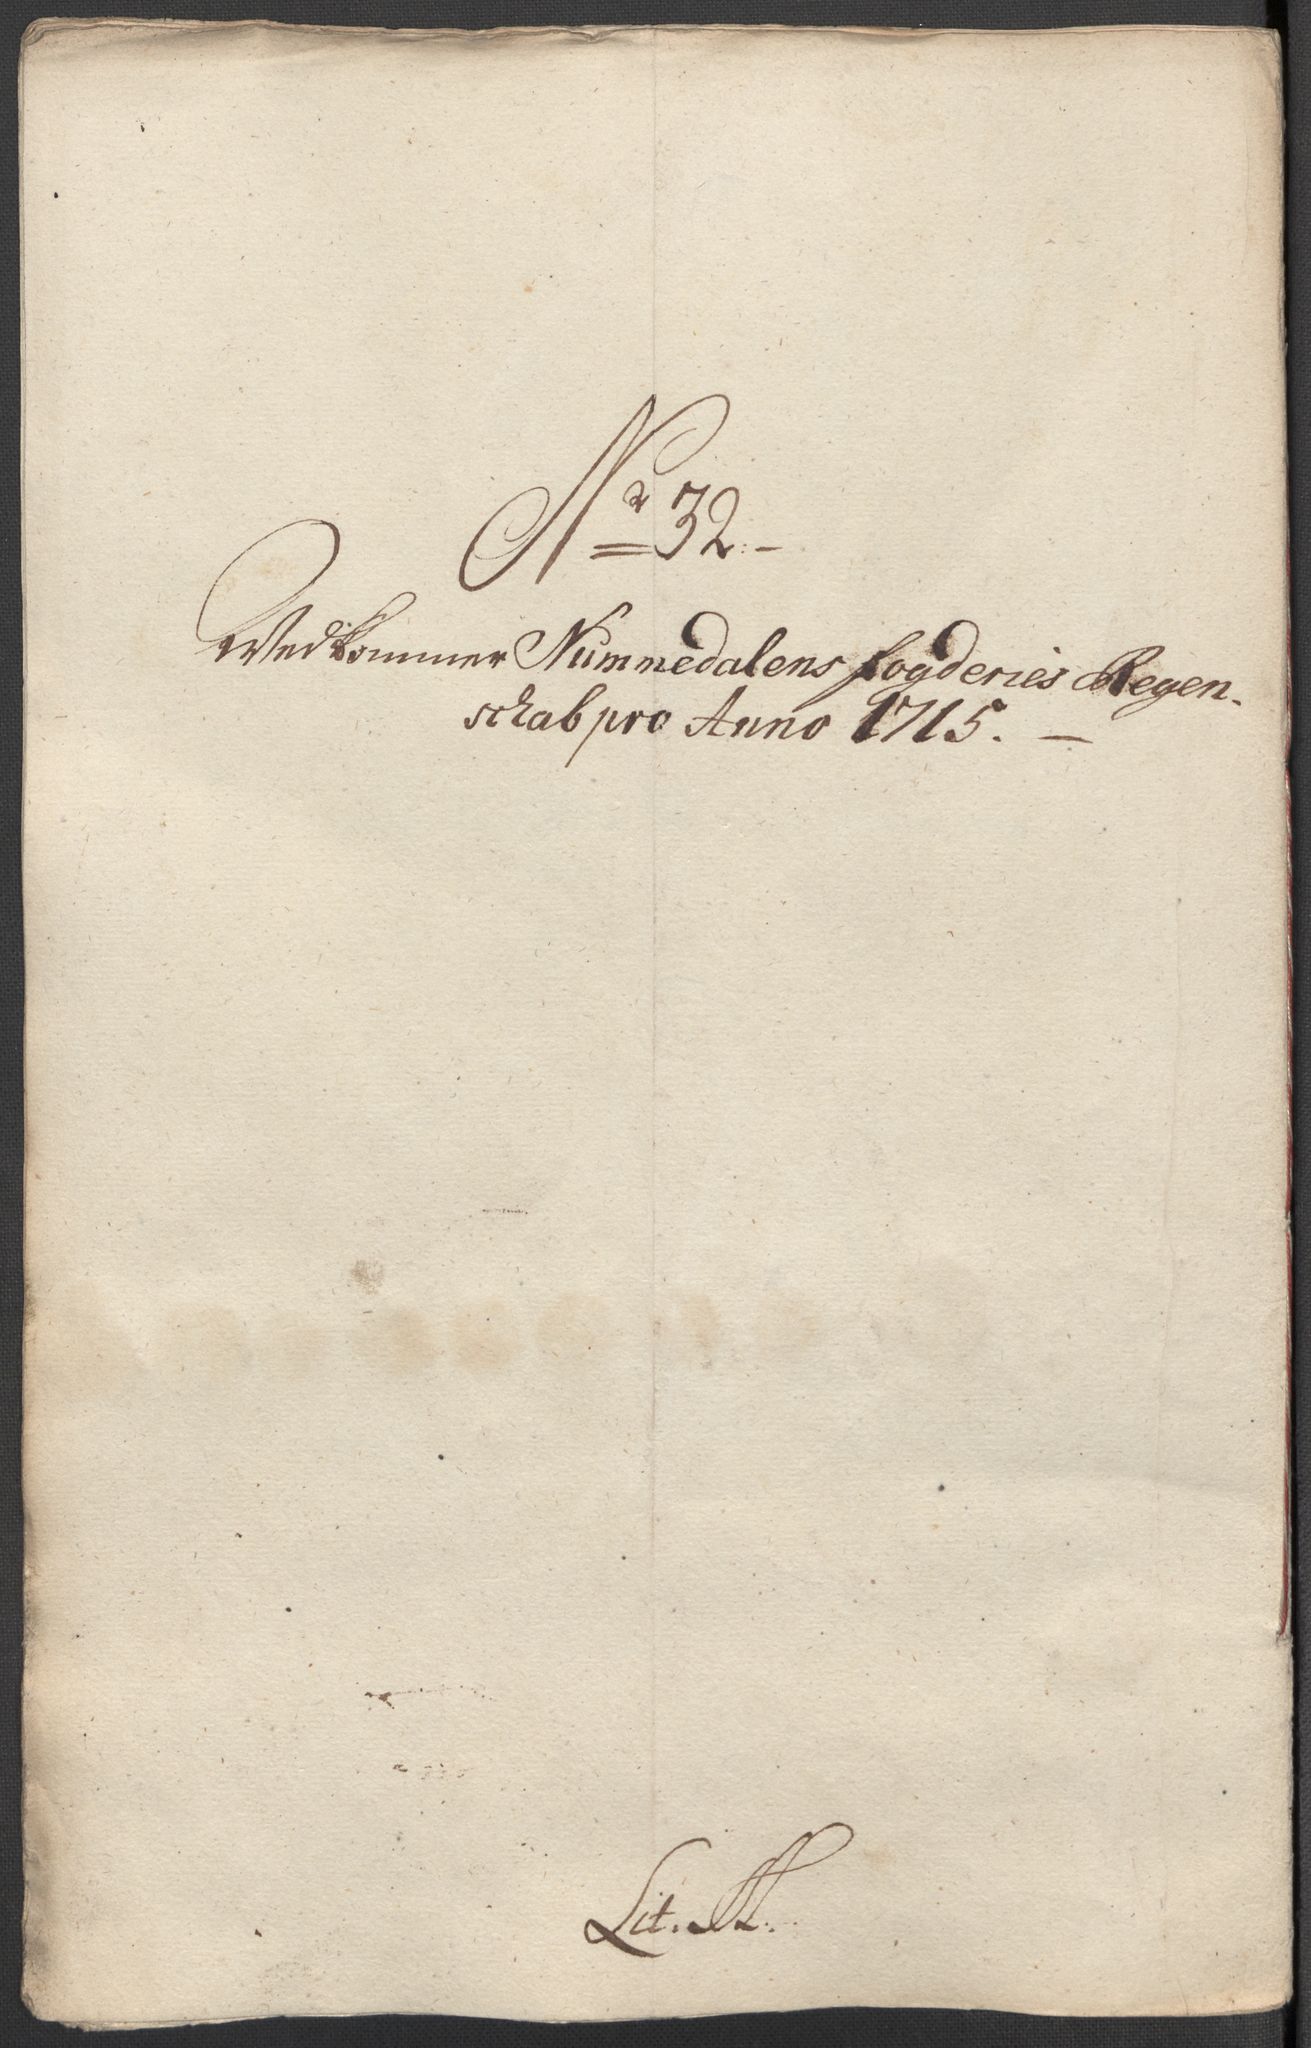 Nr 32.-
Vedkommer Nummedalens fogderies Regen-
schab pro Anno 1715. -
Lit.